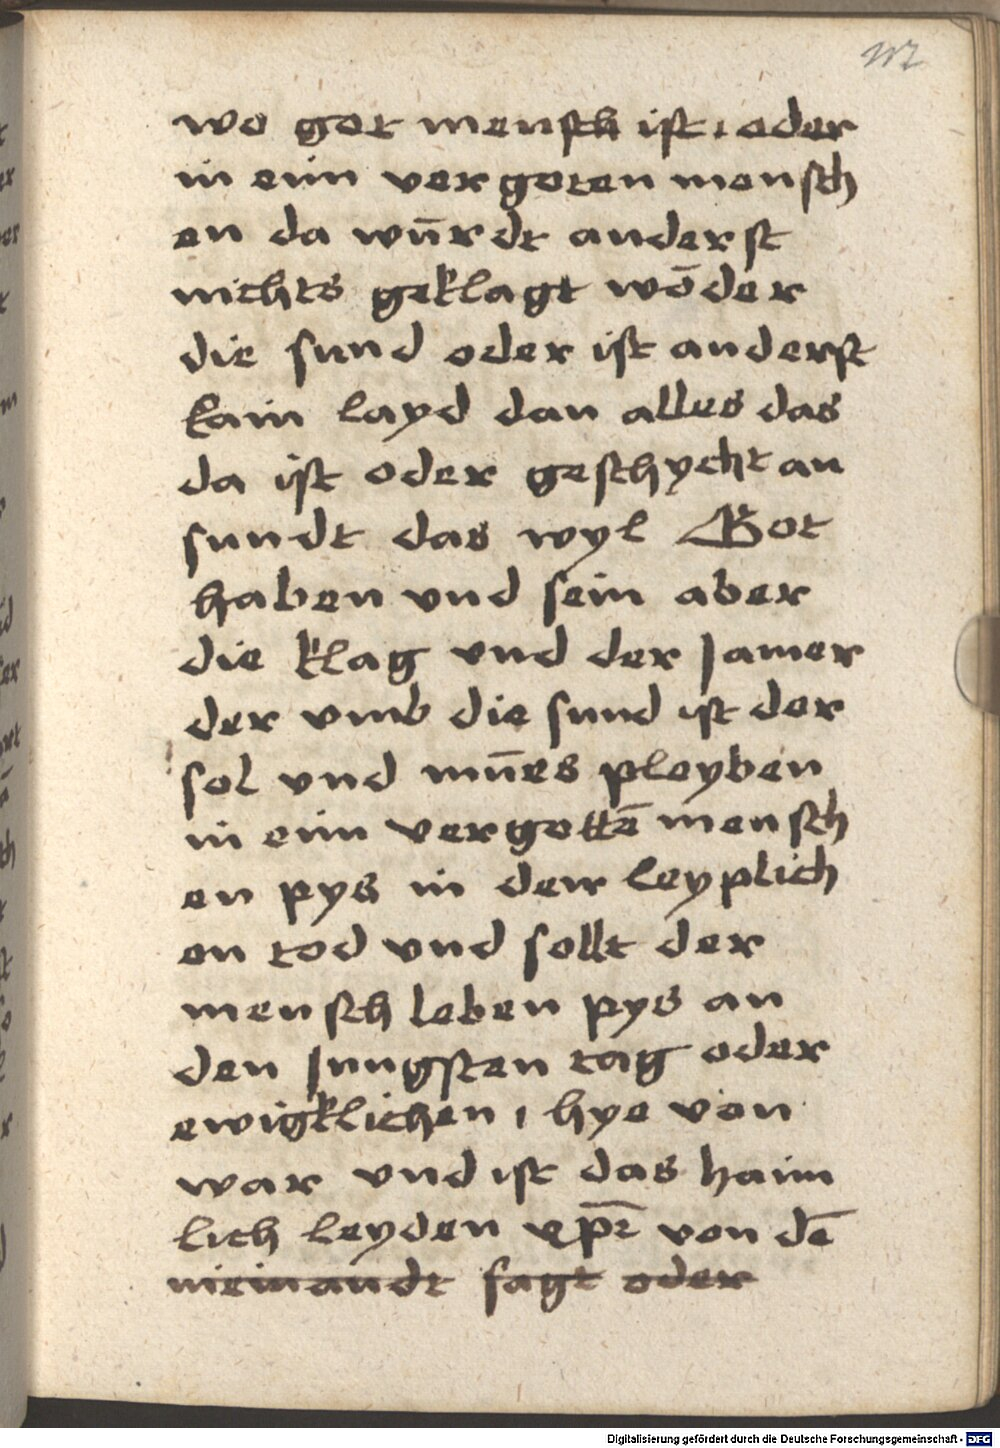 wo got mensch ist, oder
in einn vergoten mensch
en da wūrdt anderst
nichts geklagt wōder
die sund oder ist anderst
kain layd dan alles das
da ist oder geschycht an
sundt das wyl Got
haben und sein aber
die klag und der Jamer
der vmb die sund ist der
sol vnd mūes pleyben
in einn vergottē mensch
en pys in den leyplich
en tod vnd sollt der
mensch leben pys an
den Jungsten tag oder
ewigklichen, hye von
war vnd ist das haim
lich leyden von dē
niemandt sagt oder
Digitalisierung gefördert durch die Deutsche Forschungsgemeinschaft - DFG